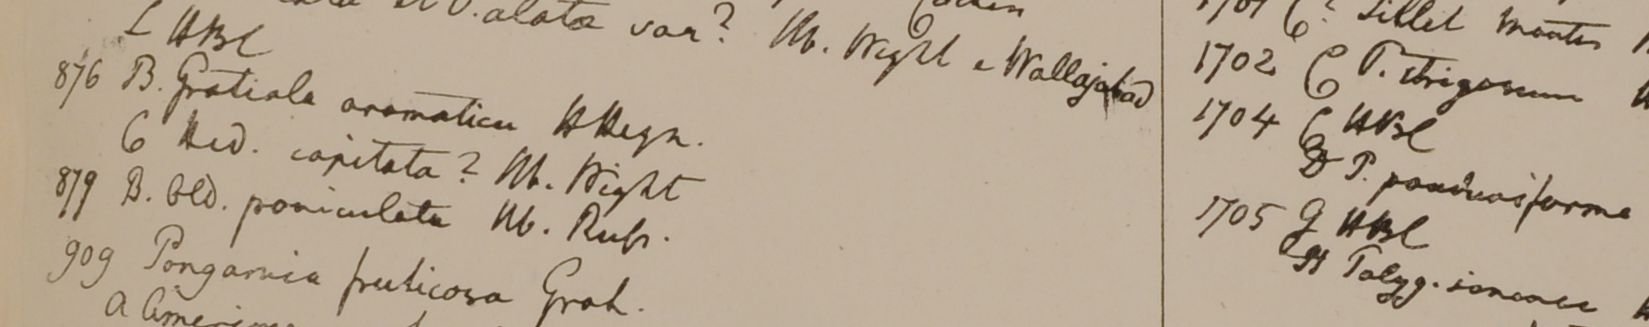 O. alata var? Hb. Wight e Wallajabad
L HBC
876 B. Gratiola aromatica HHeyn.
6 Hed. capitata? Hb. Wight
879 B. Old. paniculata Hb. Rufs.
909 Pongamia fruticosa Grah.
1701 C? Sillet
1702 C P. strigosum
1704 C HBC
D P.
1705 G HBC
H Polyg.